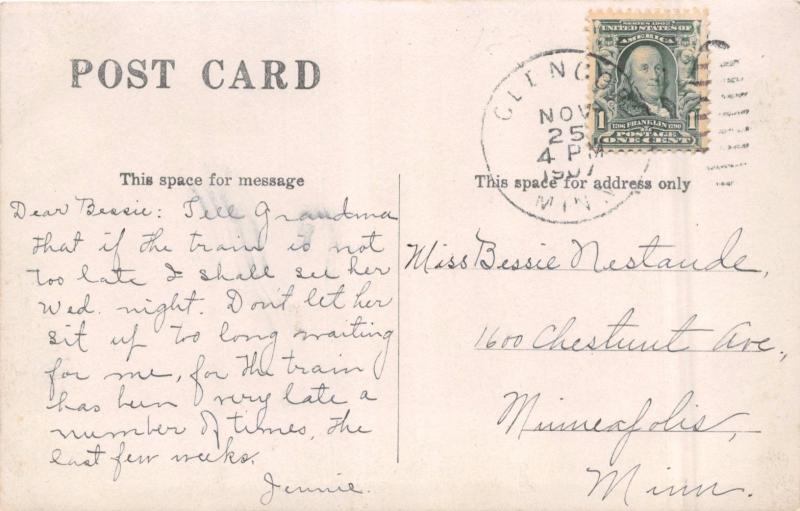 POST CARD
SERIES 1902
UNITED STATES OF
AMERICA
1706 FRANKLIN 1790
1 POSTAGE 1
ONE CENT
GLENCOE
NOV
25
4 PM
1907
MINN
This space for message
This space for address only
Dear Bessie: Tell Grandma
that if the train is not
too late I shall see her
Wed. night. Don't let her
sit up too long waiting
for me, for the train
has been very late a
number of times, the
last few weeks.
Jennie.
Miss Bessie Nestande,
1600 Chestnut Ave.,
Minneapolis,
Minn.